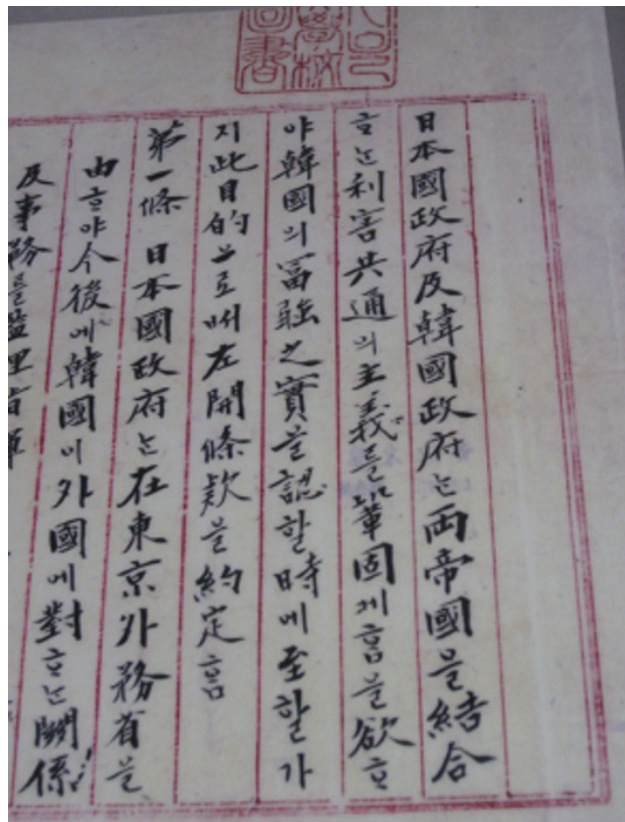 學校
圖書
日本國政府及韓國政府는両帝國을結合
ᄒᆞ는利害共通의主義를鞏固케홈을欲ᄒᆞ
야韓國의冨強之實을認할時에至할가
지此目的으로ᄡᅥ左開條款을約定홈
第一條 日本國政府는在東京外務省을
由ᄒᆞ야今後에韓國이外國에對ᄒᆞ는關係
及事務를監理指揮